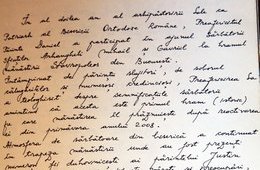 În al doilea an al arhipăstoririi Sale ca
Patriarh al Bisericii Ortodoxe Române, Preafericitul
Părinte Daniel a participat în ajunul Sărbătorii
Sfinților Arhangheli Mihail și Gavriil la hramul
Mănăstirii Stavropoleos din București.
Întâmpinat de părinții slujitori, de soborul
călugărițelor și numeroși credincioși, Preafericirea Sa
a teologhisit despre semnificațiile sărbătorii
amintind că acesta este primul hram (istoric)
pe care mănăstirea îl prăznuiește după reactivarea
ei din primăvara anului 2008.
Atmosfera sărbătoare din biserică a continuat
în trapeza mănăstirii unde au fost prezenți
numeroși fii duhovnicești ai părintelui Justin